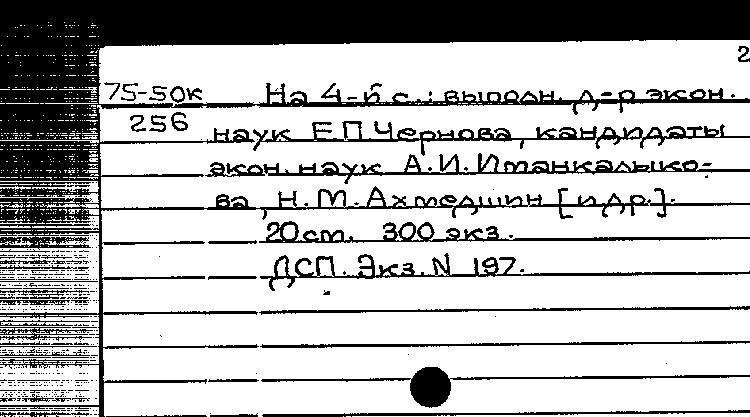 2
75-50к На 4-й с.: выполн. д-р экон.
256 наук Е.П.Чернова, кандидаты
экон. наук А.И.Иманкалыко-
ва, Н.М.Ахмедшин [и др.].
20 см. 300 экз.
ДСП. Экз. N 197.